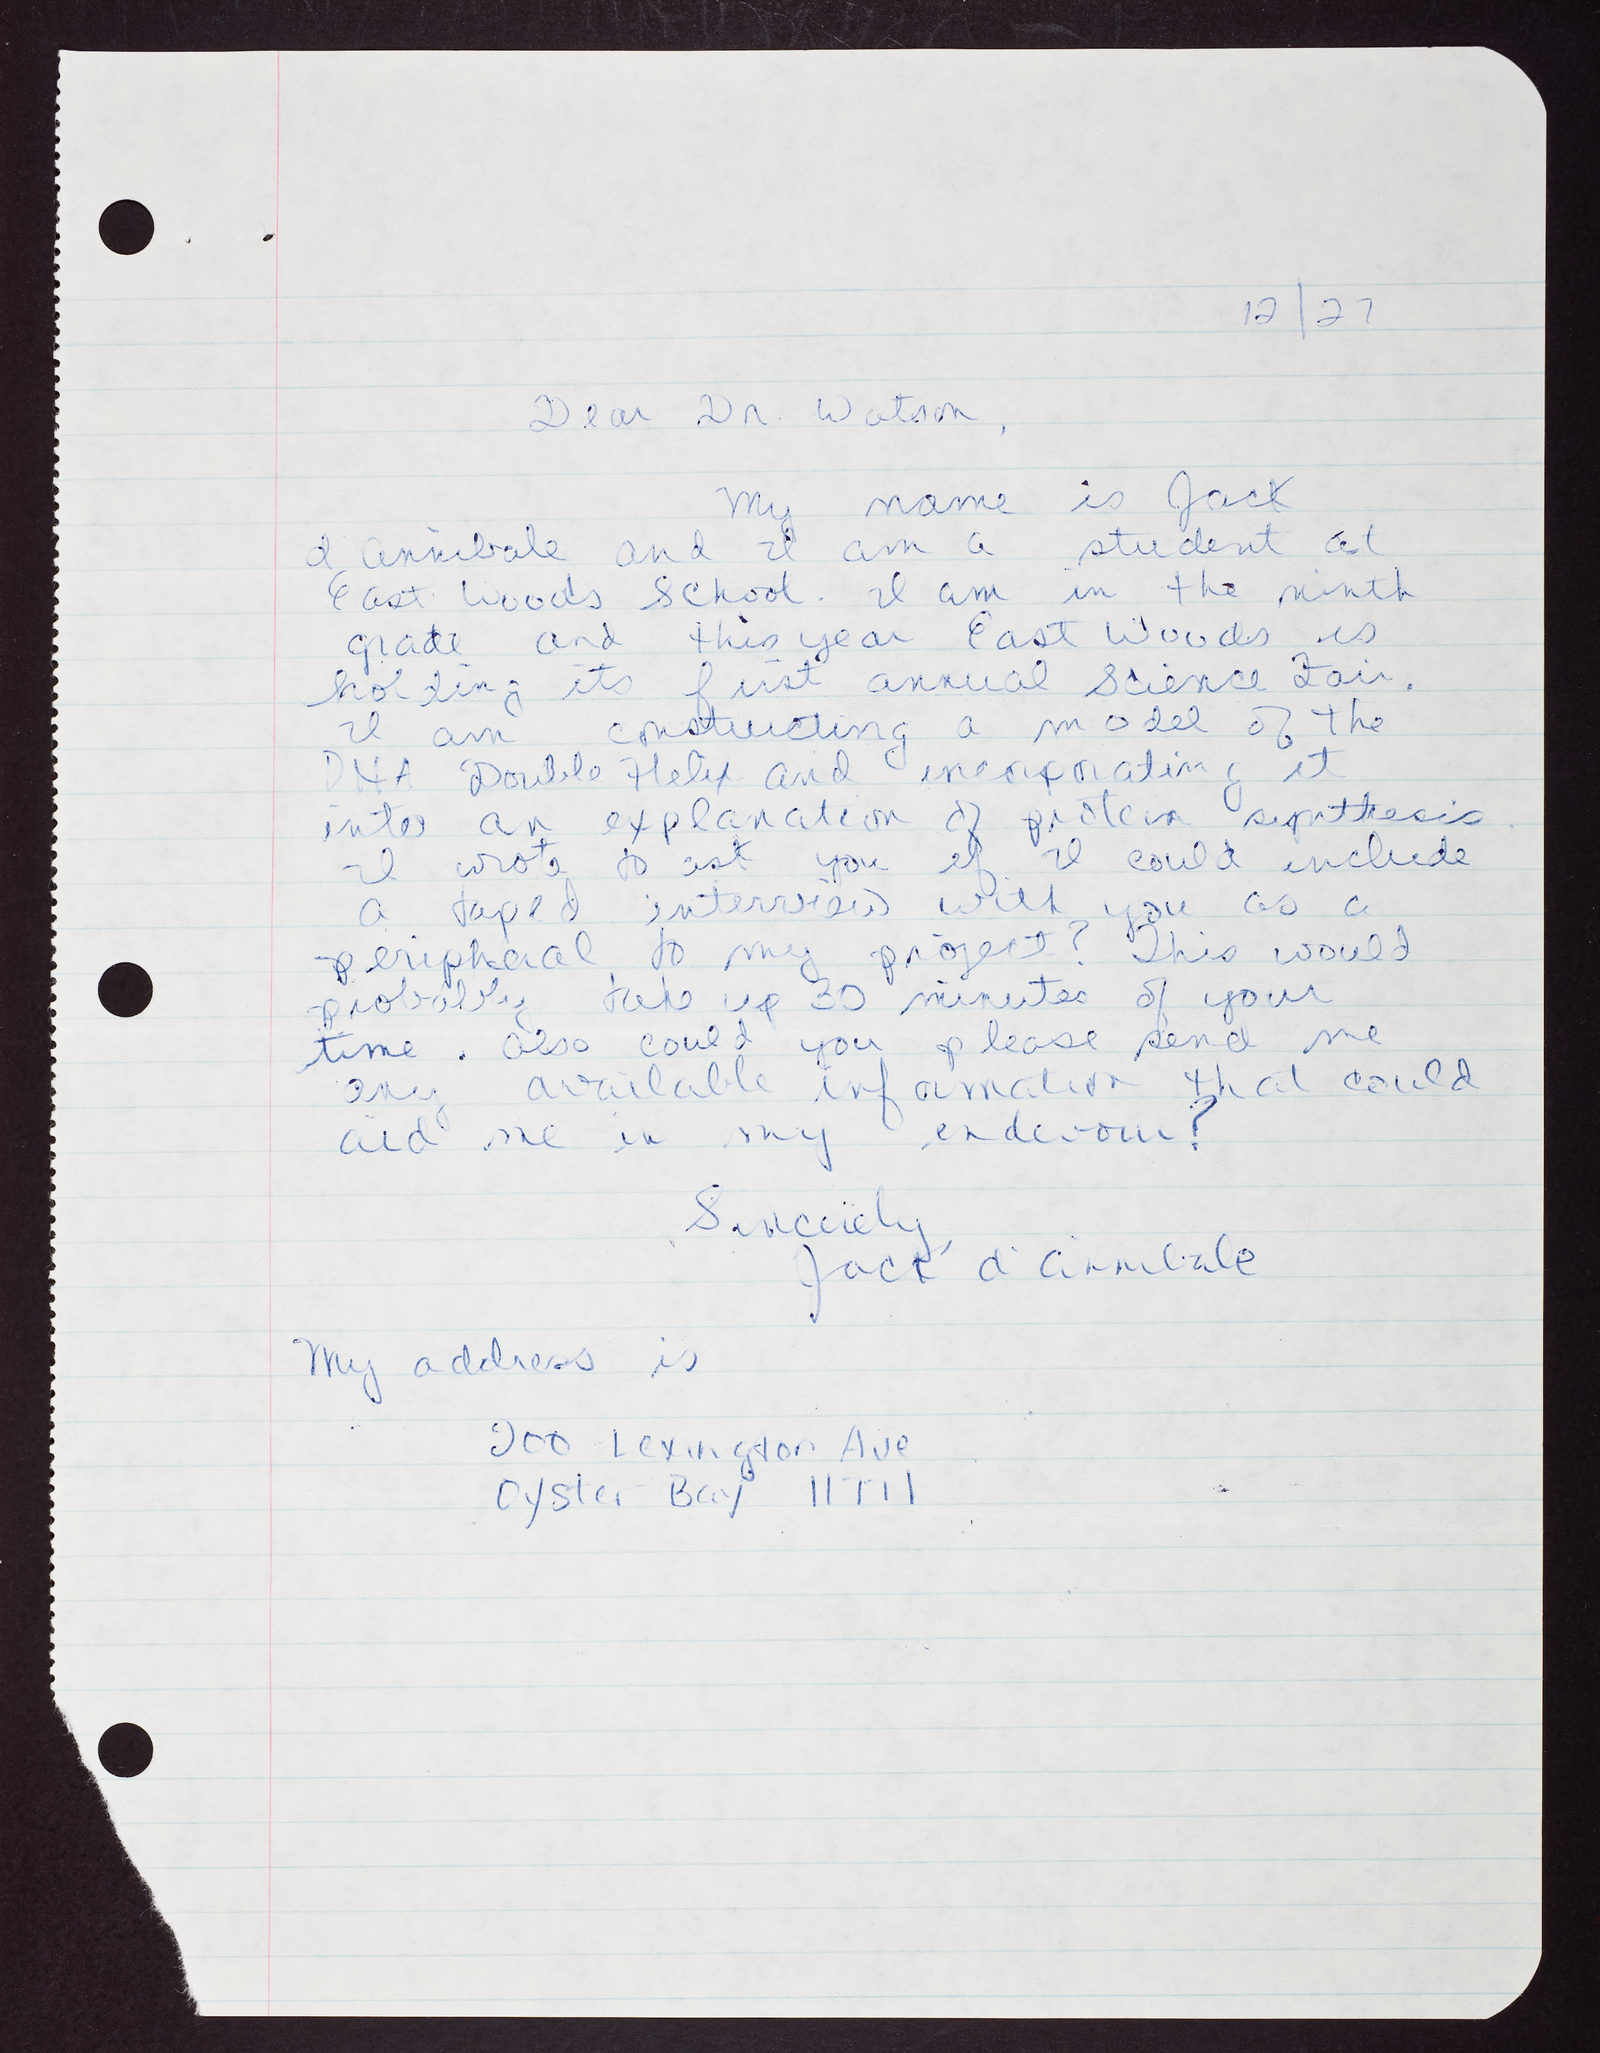 12/27
Dear Dr. Watson,
My name is Jack
d'Annibale and I am a student at
East Woods School. I am in the ninth
grade and this year East Woods is
holding its first annual Science Fair.
I am constructing a model of the
DNA Double Helix and incorporating it
into an explanation of protein synthesis.
I wrote to ask you if I could include
a taped interview with you as a
peripheral to my project? This would
probably take up 30 minutes of your
time. Also could you please send me
any available information that could
aid me in my endevour?
Sincerely,
Jack d'Annibale
My address is
200 Lexington Ave
Oyster Bay 11771